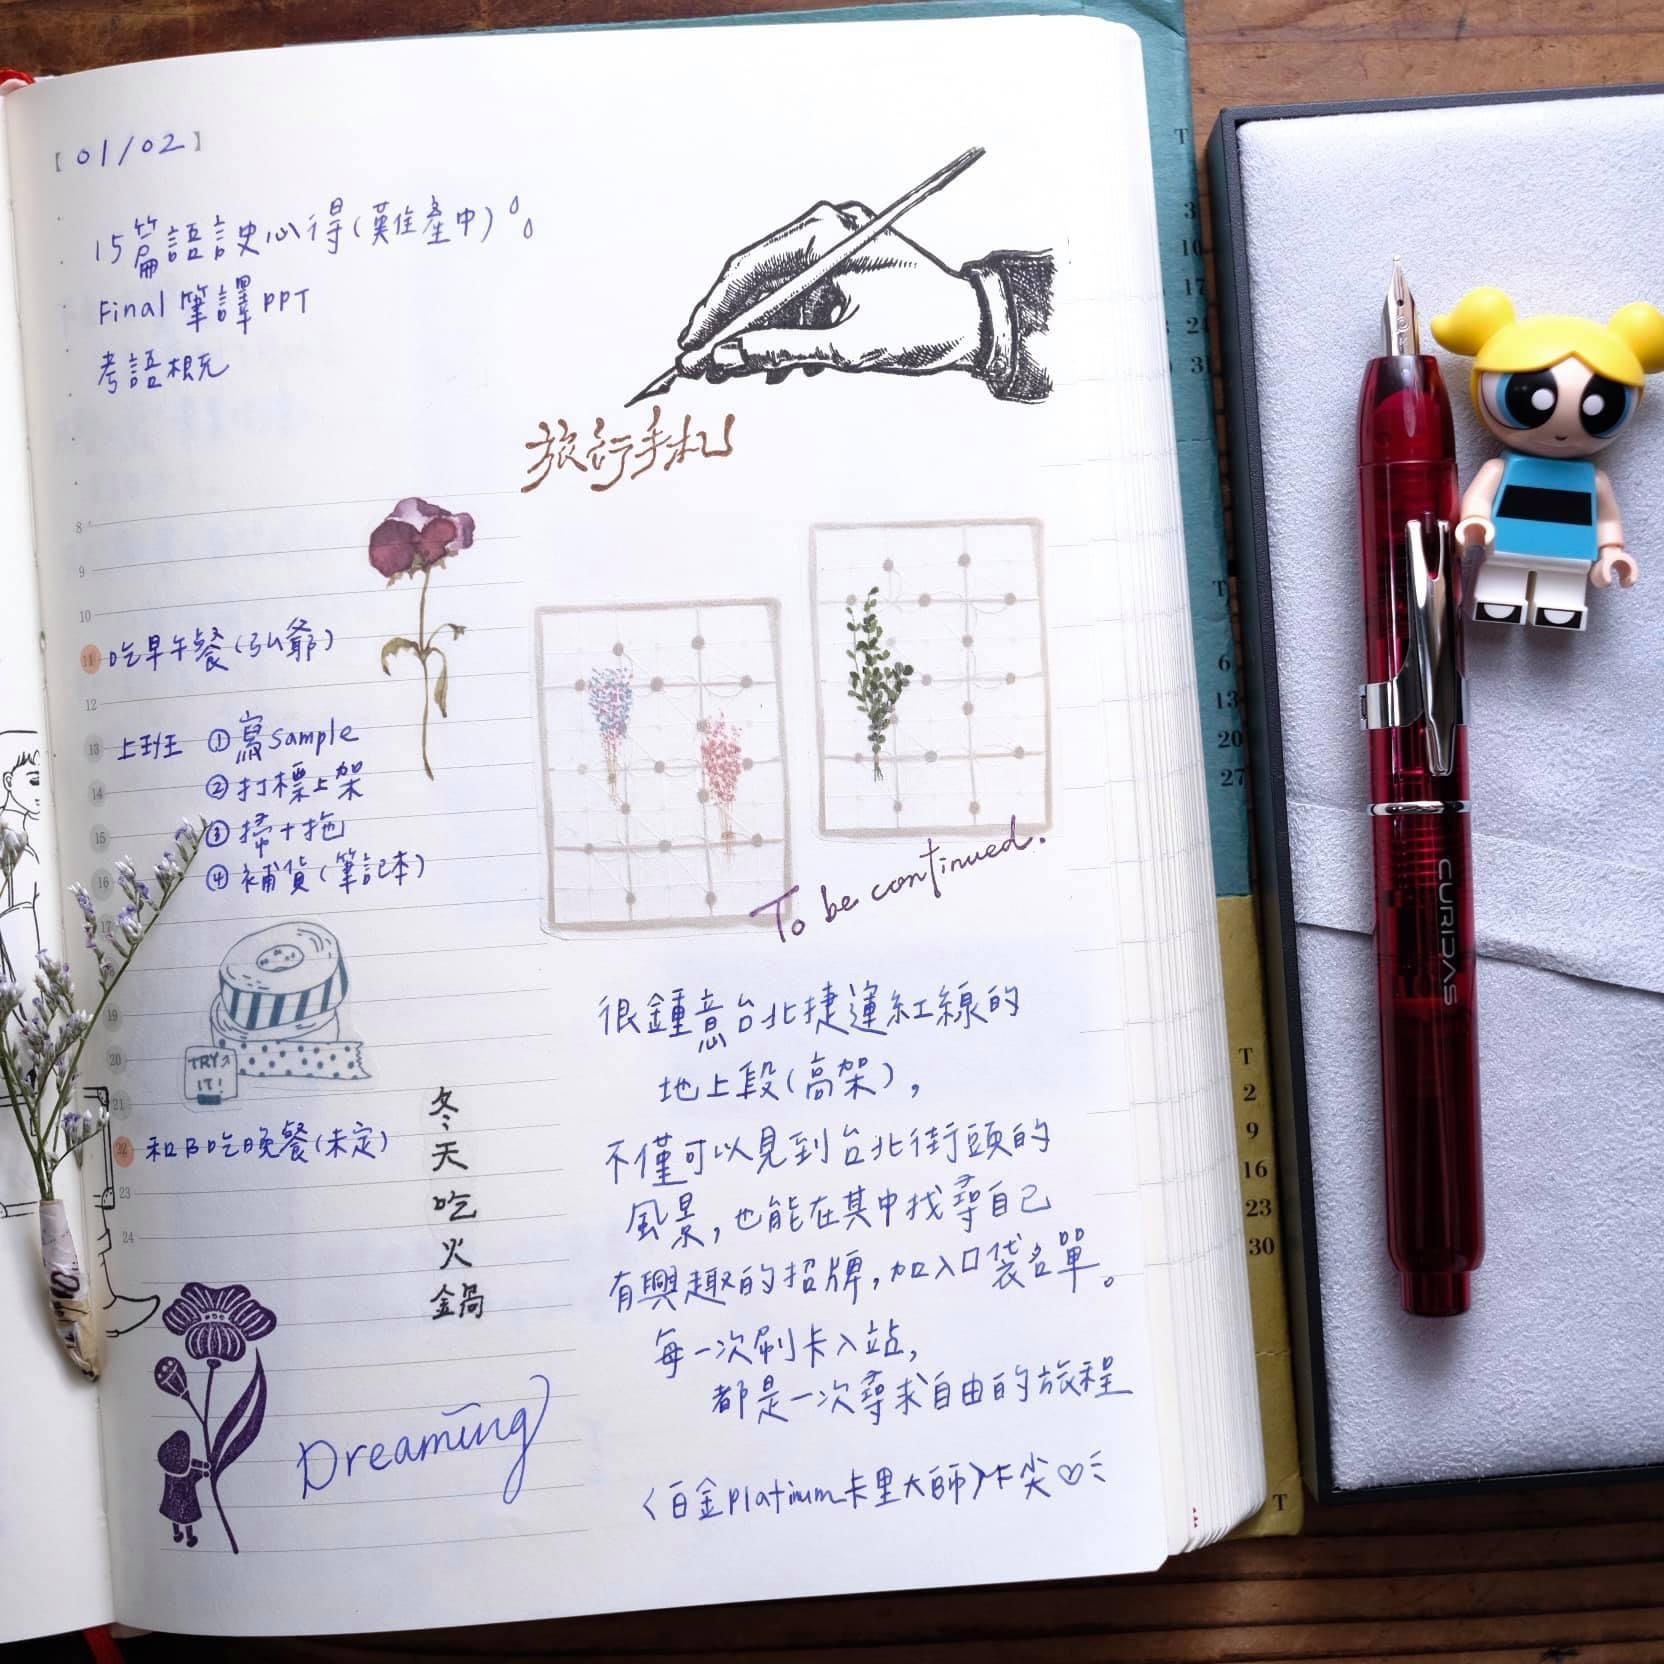 【01/02】
15篇語言史心得(難產中)
Final 筆譯 PPT
考語概
旅行手札
8
9
10
11 吃早午餐(弘爺)
12
13 上班 ①寫sample
14 ②打標上架
15 ③掃+拖
16 ④補貨(筆記本)
17
18
19
20
TRY IT!
21
22 和B吃晚餐(未定)
23
24
冬天吃火鍋
Dreaming
To be continued.
很鍾意台北捷運紅線的
地上段(高架),
不僅可以見到台北街頭的
風景,也能在其中找尋自己
有興趣的招牌,加入口袋名單。
每一次刷卡入站,
都是一次尋求自由的旅程
〈白金platinum卡里大師〉F尖♡
CURIDAS
T
3
10
17
24
31
T
6
13
20
27
T
2
9
16
23
30
T